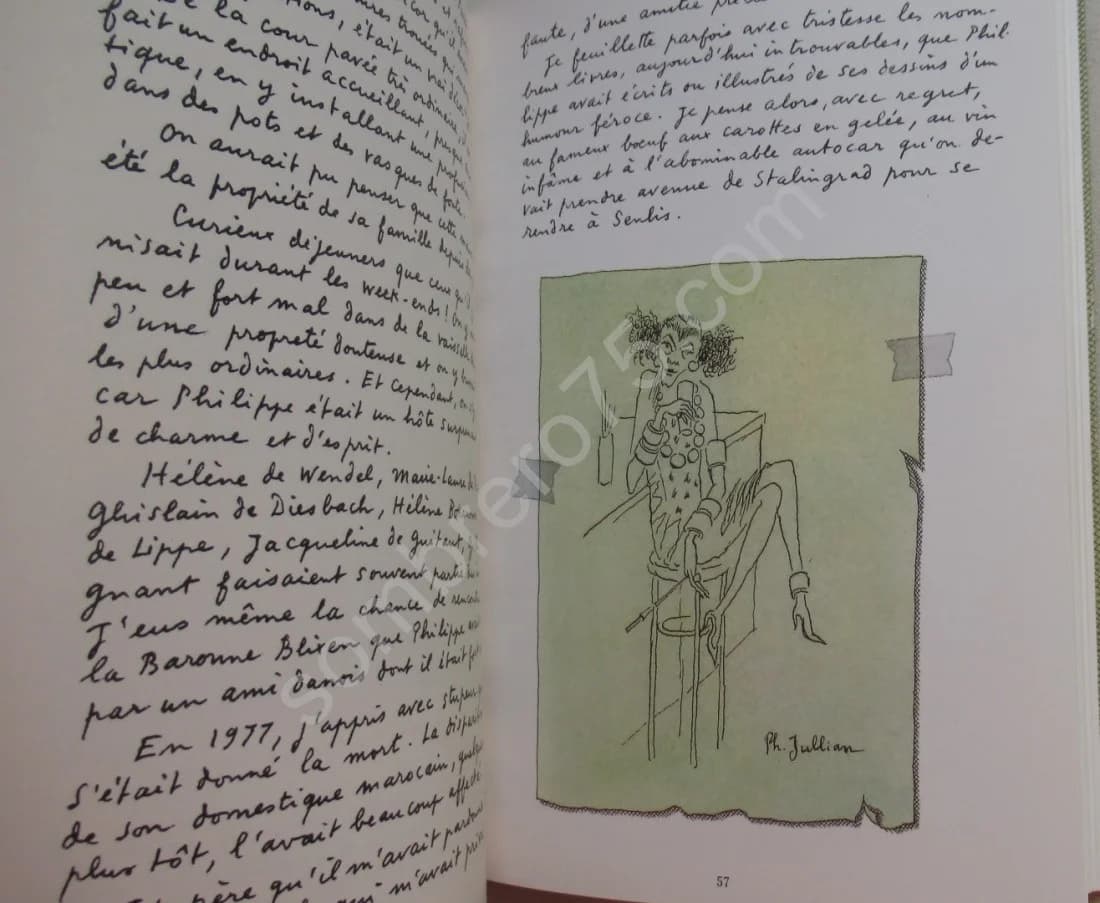 était un vrai
la cour pavée très ordinaire,
fait un endroit accueillant, presque
tique, en y installant une
dans des pots et des vasques de fonte.
On aurait pu penser que cette
été la propriété de sa famille depuis
Curieux déjeuners que ceux qu'il
nisait durant les week-ends! On y
peu et fort mal dans de la vaisselle
d'une propreté douteuse et on y
les plus ordinaires. Et cependant, on
car Philippe était un hôte
de charme et d'esprit.
Hélène de Wendel, Marie-Laure
Ghislain de Diesbach, Hélène
de Lippe, Jacqueline de Guitaut,
gnant faisaient souvent partie
J'eus même la chance de
la Baronne Blixen que Philippe
par un ami danois dont il était
En 1977, j'appris avec stupeur
s'était donné la mort. La
de son domestique marocain,
plus tôt, l'avait beaucoup affecté
père qu'il m'avait
qui m'avait
faute, d'une amitié
Je feuillette parfois avec tristesse les nom-
breux livres, aujourd'hui introuvables, que Phil-
lippe avait écrits ou illustrés de ses dessins d'un
humour féroce. Je pense alors, avec regret,
au fameux bœuf aux carottes en gelée, au vin
infâme et à l'abominable autocar qu'on de-
vait prendre avenue de Stalingrad pour se
rendre à Senlis.
Ph. Jullian
57
sombrero75.com